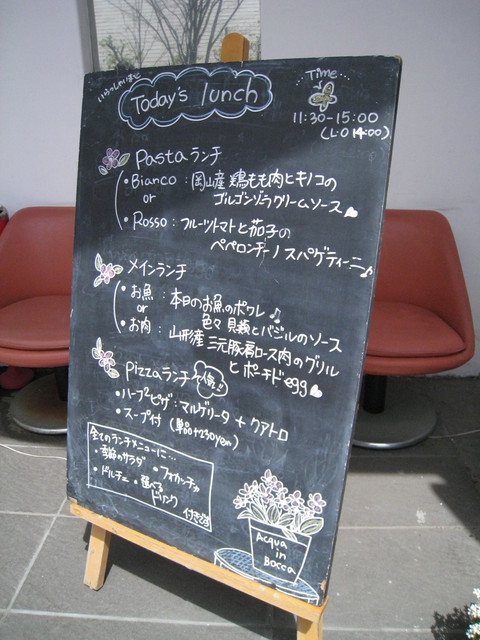 いらっしゃいませ
Today's lunch
Time
11:30-15:00
(L.O 14:00)
Pasta ランチ
・Bianco：岡山産 鶏もも肉とキノコの
ゴルゴンゾラクリームソース
or
・Rosso：フルーツトマトと茄子の
ペペロンチーノスパゲティーニ♪
メインランチ
・お魚：本日のお魚のポワレ♪
色々貝類とバジルのソース
or
・お肉：山形産 三元豚肩ロース肉のグリル
とポーチドegg
Pizzaランチ 人気!!
・ハーフ2ピザ：マルゲリータ + クアトロ
・スープ付 (単品+230yen)
全てのランチメニューに…
・季節のサラダ ・フォカッチャ
・ドルチェ ・選べる
ドリンク
付きです
Acqua
in
Bocca